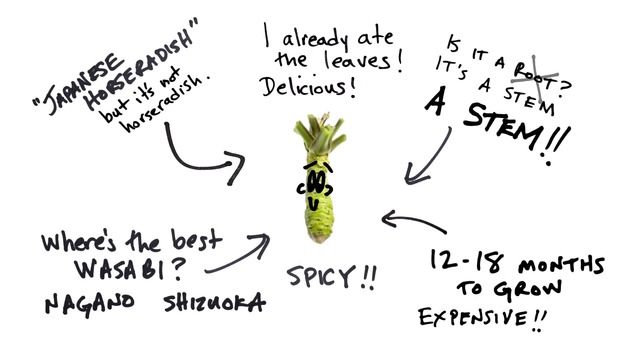 "JAPANESE
HORSERADISH"
but it's not
horseradish.
I already ate
the leaves!
Delicious!
IS IT A ROOT?
IT'S A STEM
A STEM!!
Where's the best
WASABI?
NAGANO SHIZUOKA
SPICY!!
12-18 MONTHS
TO GROW
EXPENSIVE!!